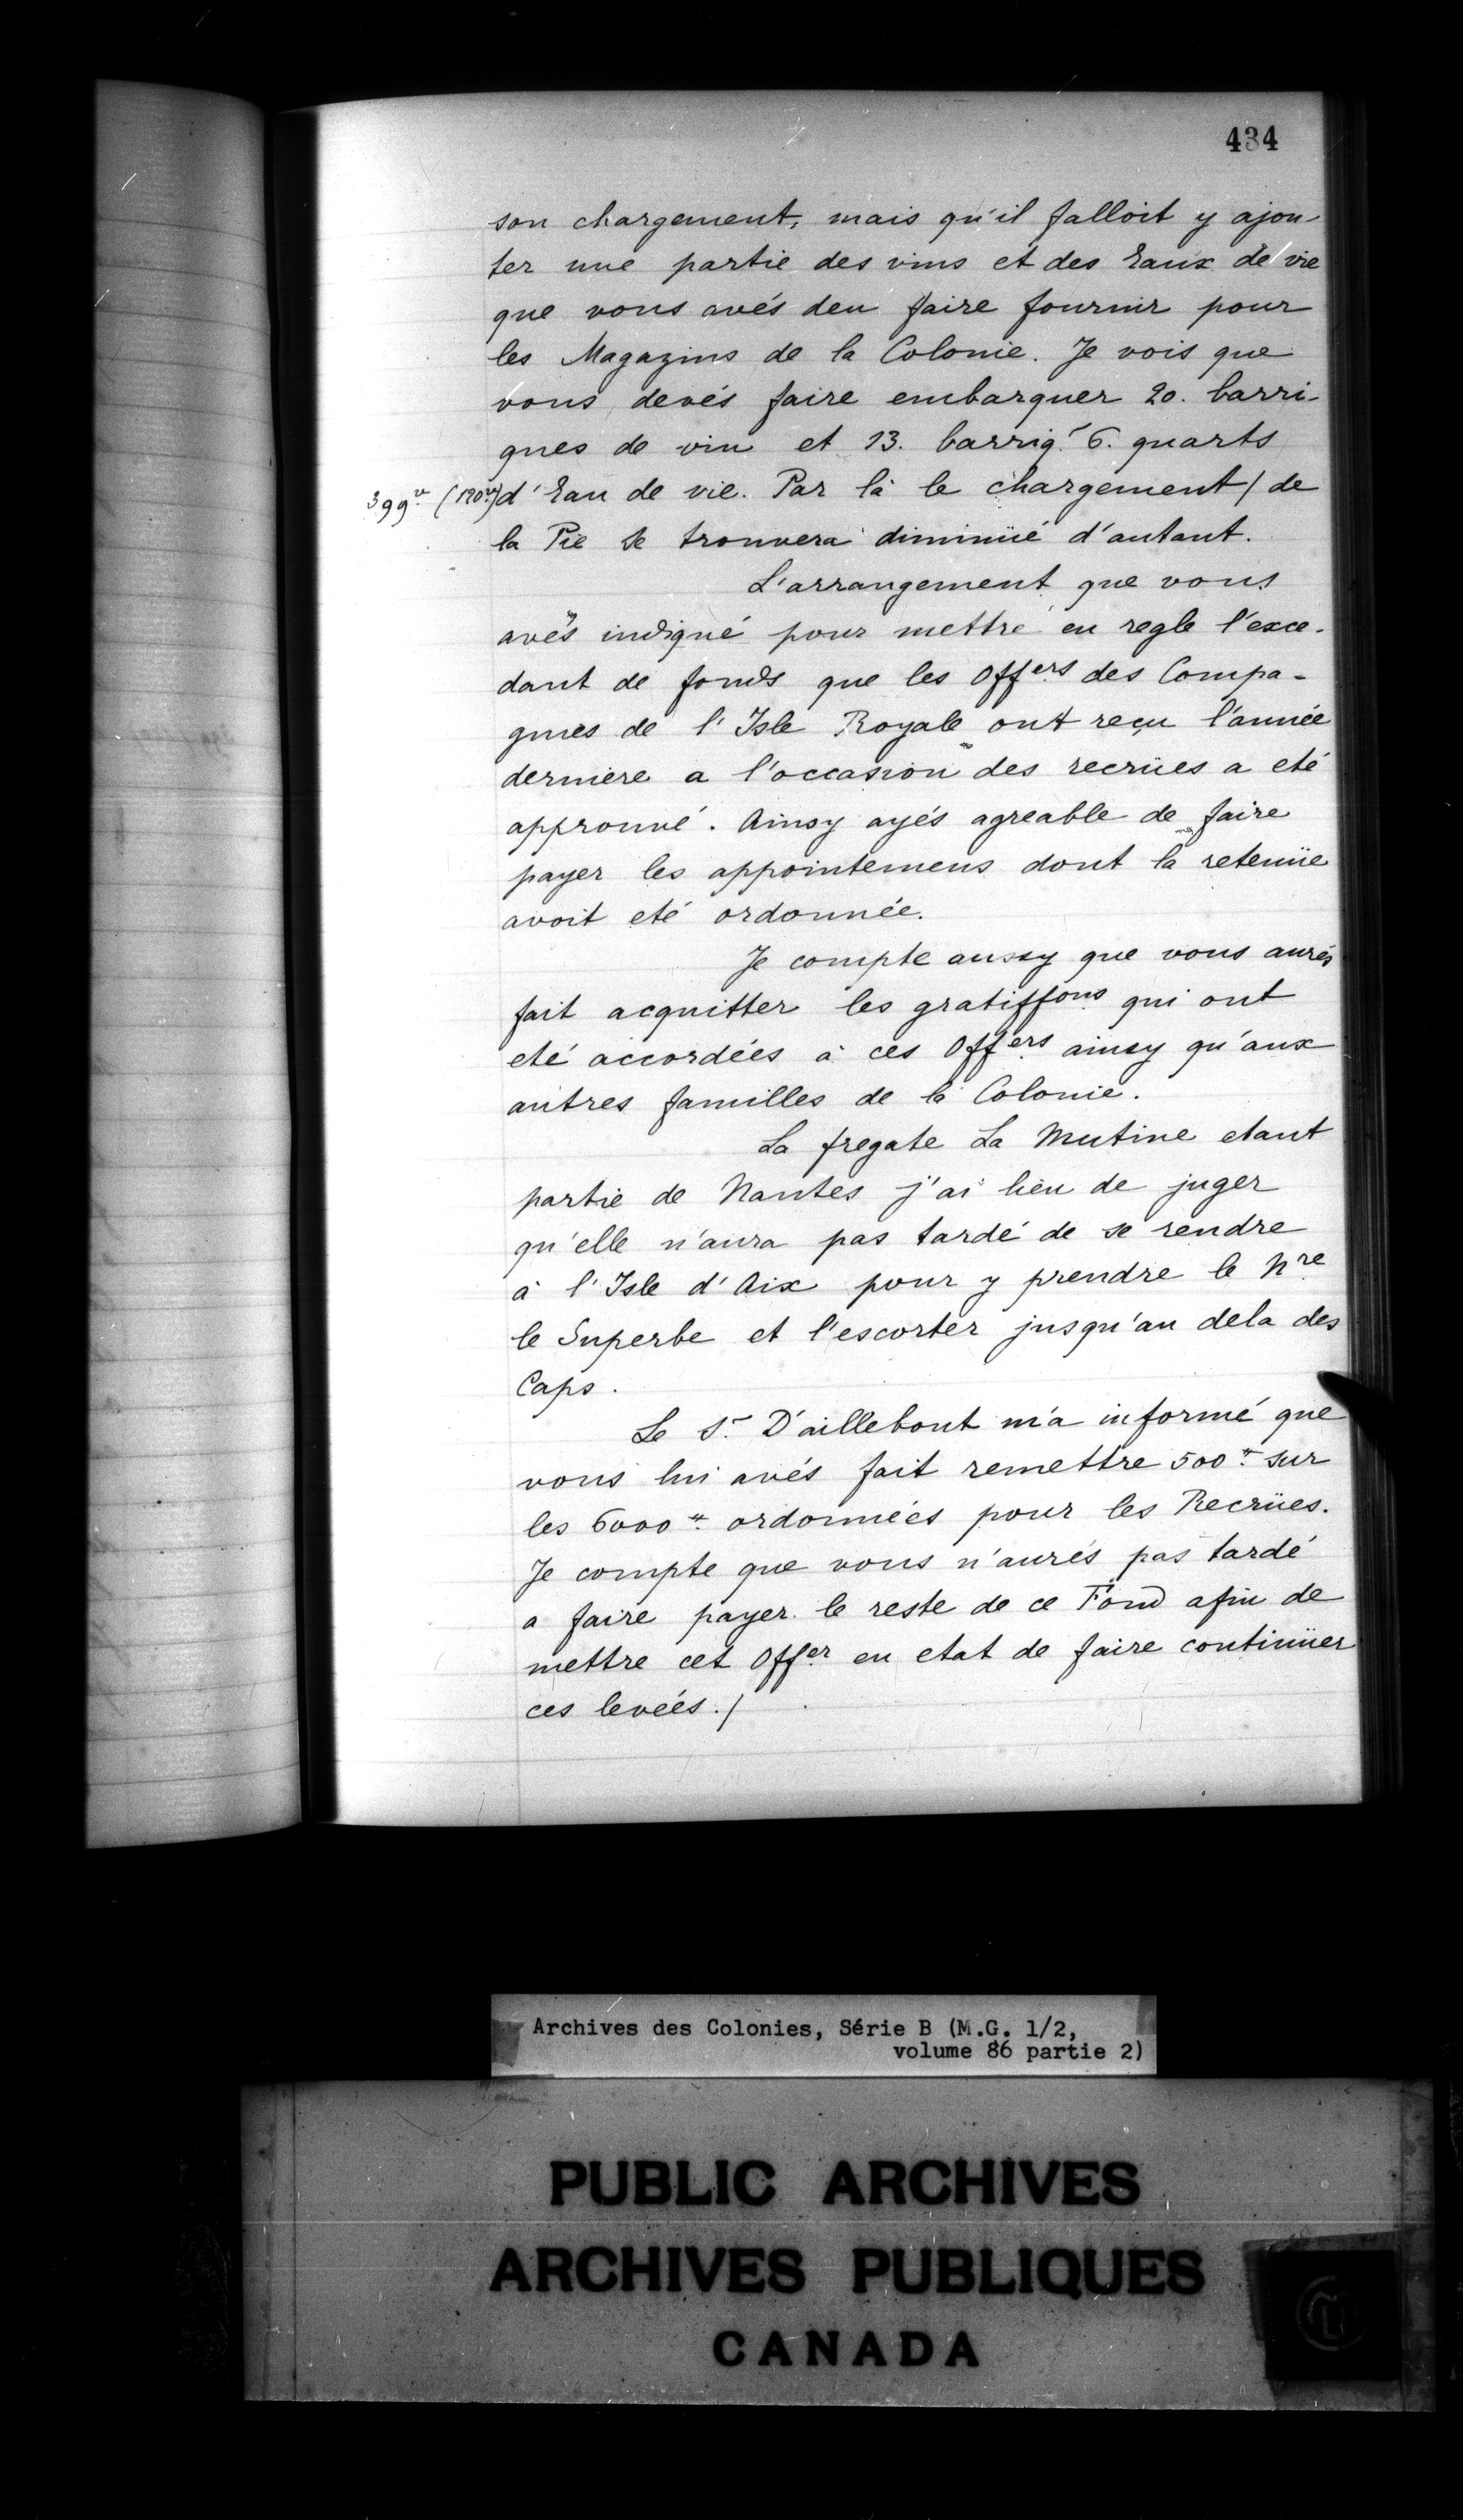 434
son chargement, mais qu'il falloit y ajou-
ter une partie des vins et des Eaux de vie
que vous avés deu faire fournir pour
les Magazins de la Colonie. Je vois que
vous devés faire embarquer 20. barri-
ques de vin et 13. barriq. 6. quarts
399vo (190vo) d'Eau de vie. Par là le chargement / de
la Pie se trouvera diminüé d'autant.
L'arrangement que vous
avés indiqué pour mettre en regle l'exce-
dant de fonds que les Offers des Compa-
gnies de l'Isle Royale ont reçu l'année
derniere a l'occasion des recrües a eté
approuvé. Ainsy ayés agreable de faire
payer les appointemens dont la retenüe
avoit eté ordonnée.
Je compte aussy que vous aurés
fait acquitter les gratiffons qui ont
eté accordées à ces Offers ainsy qu'aux
autres familles de la Colonie.
La fregate La Mutine etant
partie de Nantes j'ai lieu de juger
qu'elle n'aura pas tardé de se rendre
à l'Isle d'Aix pour y prendre le Nre
le Superbe et l'escorter jusqu'au dela des
Caps.
Le Sr. D'aillebout m'a informé que
vous lui avés fait remettre 500# sur
les 6000# ordonnées pour les Recrües.
Je compte que vous n'aurés pas tardé
a faire payer le reste de ce Fond afin de
mettre cet Offer en etat de faire continüer
ces levées./
Archives des Colonies, Série B (M.G. 1/2,
volume 86 partie 2)
PUBLIC ARCHIVES
ARCHIVES PUBLIQUES
CANADA